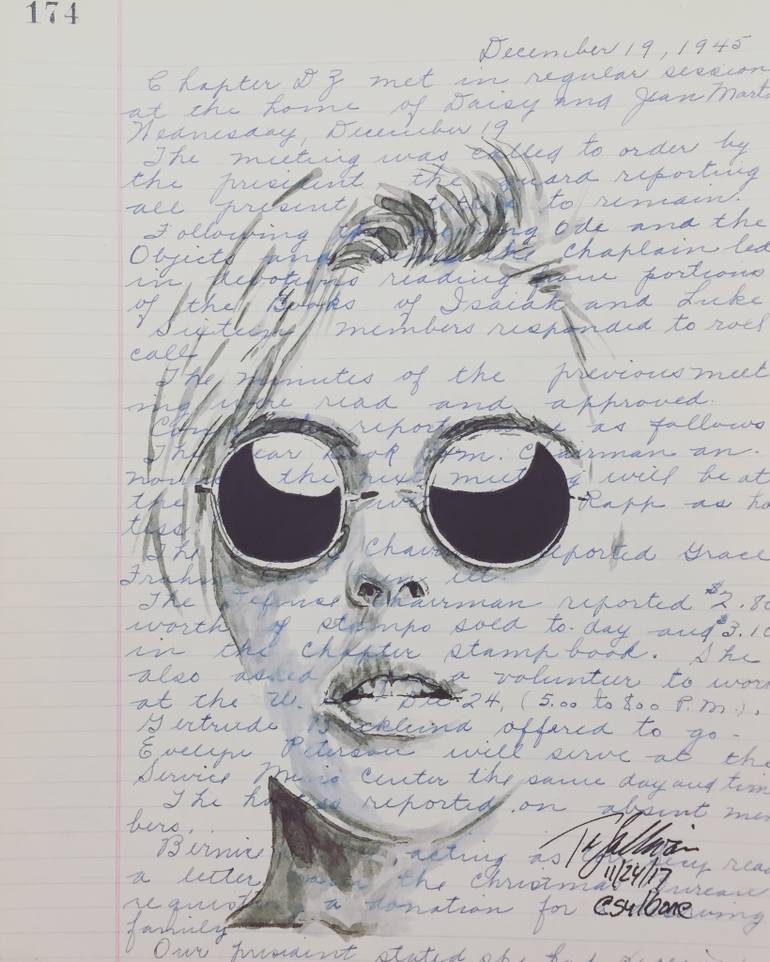 174
December 19, 1945
Chapter DZ met in regular session
at the home of Daisy and Jean
Wednesday, December 19
The meeting was called to order by
the president the guard reporting
all present to remain.
Following the Ode and the
Objects and the chaplain led
in devotions reading portions
of the Books of Isaiah and Luke
Sixteen members responded to roll
call.
The minutes of the previous meet
ing were read and approved.
reports as follows
The Year Book Com. Chairman an.
the next meeting will be at
the Rapp as ho
tess.
The Chair reported Grace
ill
The Defense Chairman reported $2.80
worth of stamps sold to-day and $3.10
in the chapter stamp book. She
also asked a volunteer to work
at the U. Dec 24, (5.00 to 8.00 P.M.).
Gertrude offered to go-
Evelyn Peterson will serve at the
Service Mens Center the same day and tim
The hostess reported on absent mem
bers.
Bernice , acting as read
a letter the Christmas
request a donation for
family
Our president stated she had
11/24/17